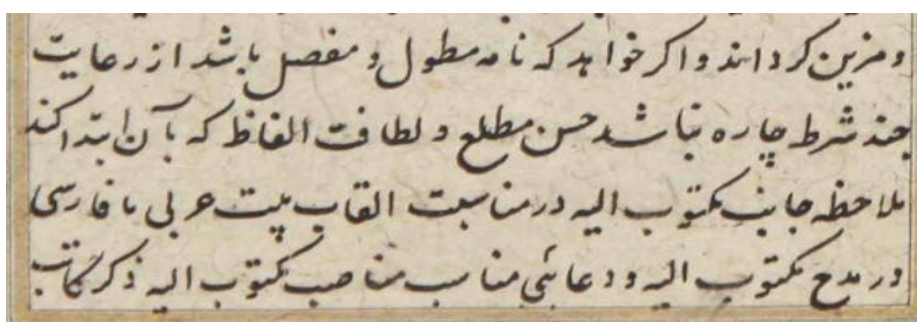 ومزین کرداند واکر خواهد که نامه مطول و مفصل باشد از رعایت
چند شرط چاره نباشد حسن مطلع و لطافت الفاظ که بآن ابتدا کند
ملاحظه جانب مکتوب الیه در مناسبت القاب بیت عربی یا فارسی
در مدح مکتوب الیه و دعائی مناسب مناصب مکتوب الیه ذکر کاتب